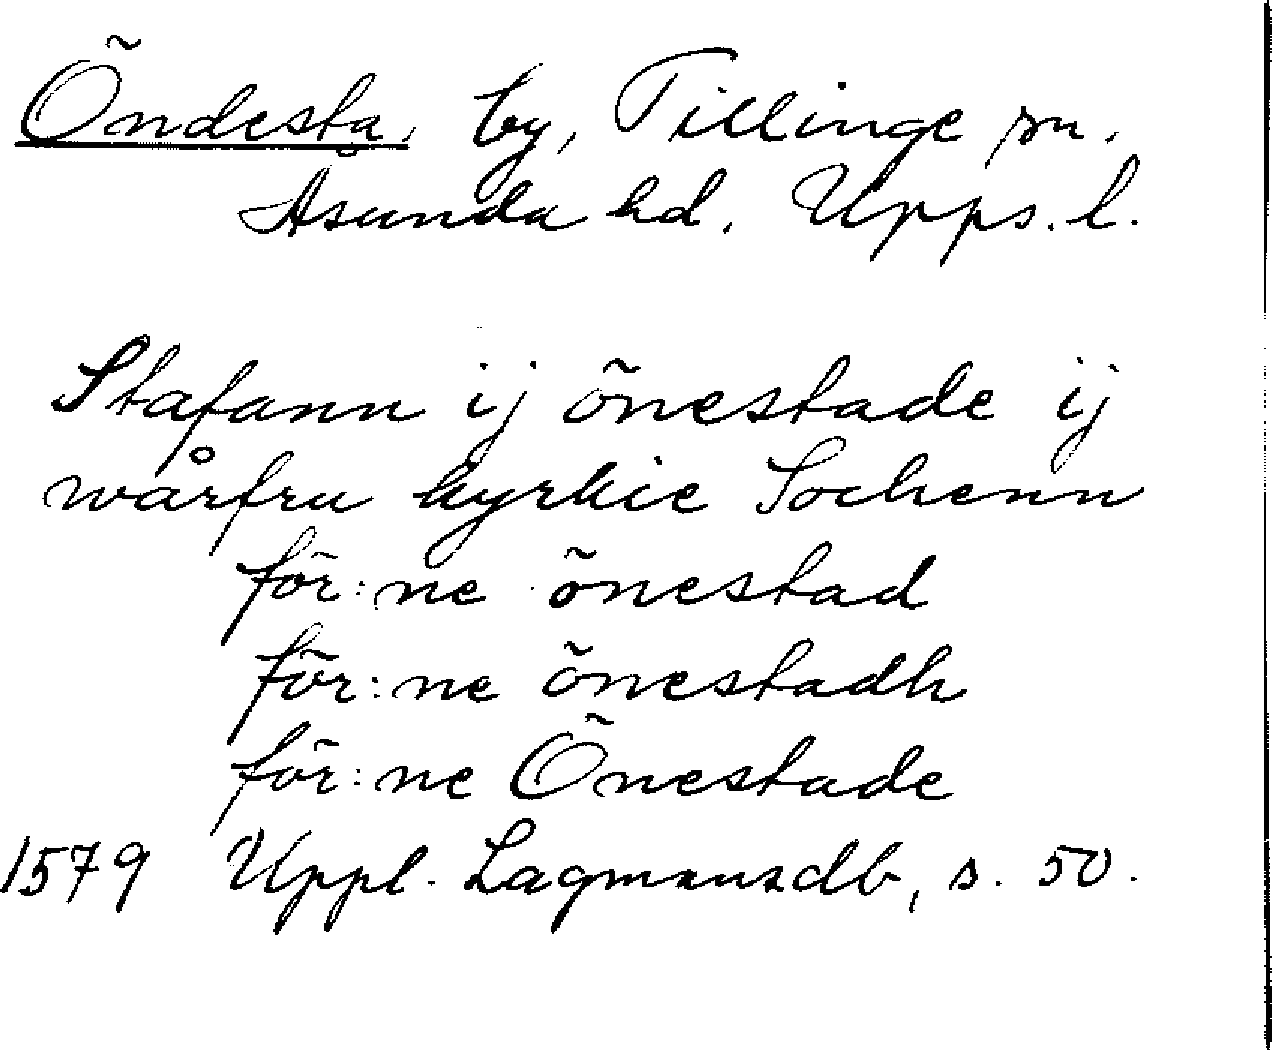 Õndesta, by, Tillinge sn.
Åsunda hd. Upps. l.
Stafann ij õnestade ij
wårfru kyrkie Sochenn
för:ne õnestad
för:ne õnestadh
för:ne Õnestade
1579 Uppl. Lagmansdb, s. 50.